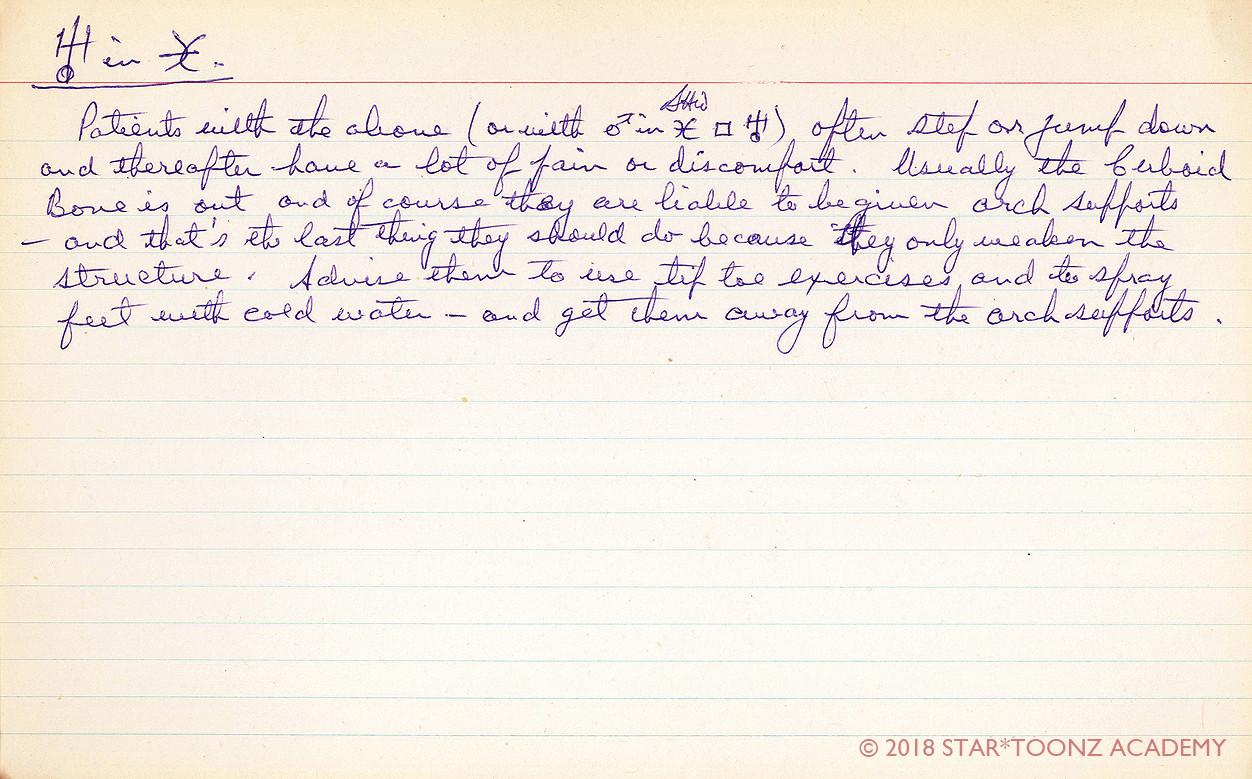 ♅ in ♓.
Patients with the above (or with ♂ in ♓ □ ♅) often step or jump down
and thereafter have a lot of pain or discomfort. Usually the Cuboid
Bone is out and of course they are liable to be given arch supports
– and that's the last thing they should do because they only weaken the
structure. Advise them to use tip toe exercises and to spray
feet with cold water – and get them away from the arch supports.
© 2018 STAR*TOONZ ACADEMY